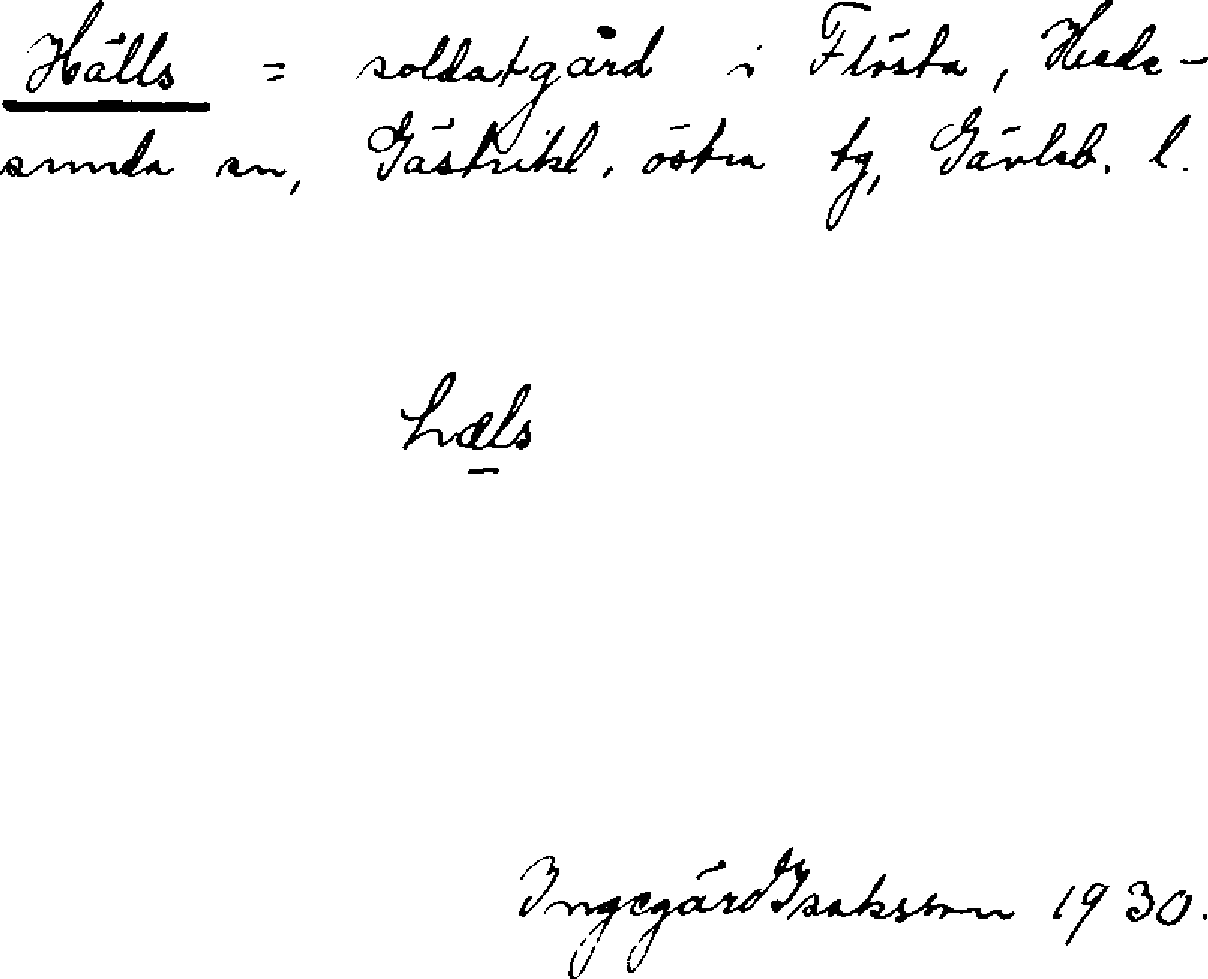 Hälls = soldatgård i Flösta, Hede-
sunda sn, Gästrikl. östra tg, Gävleb. l.
hæls
Ingegärd Isaksson 1930.